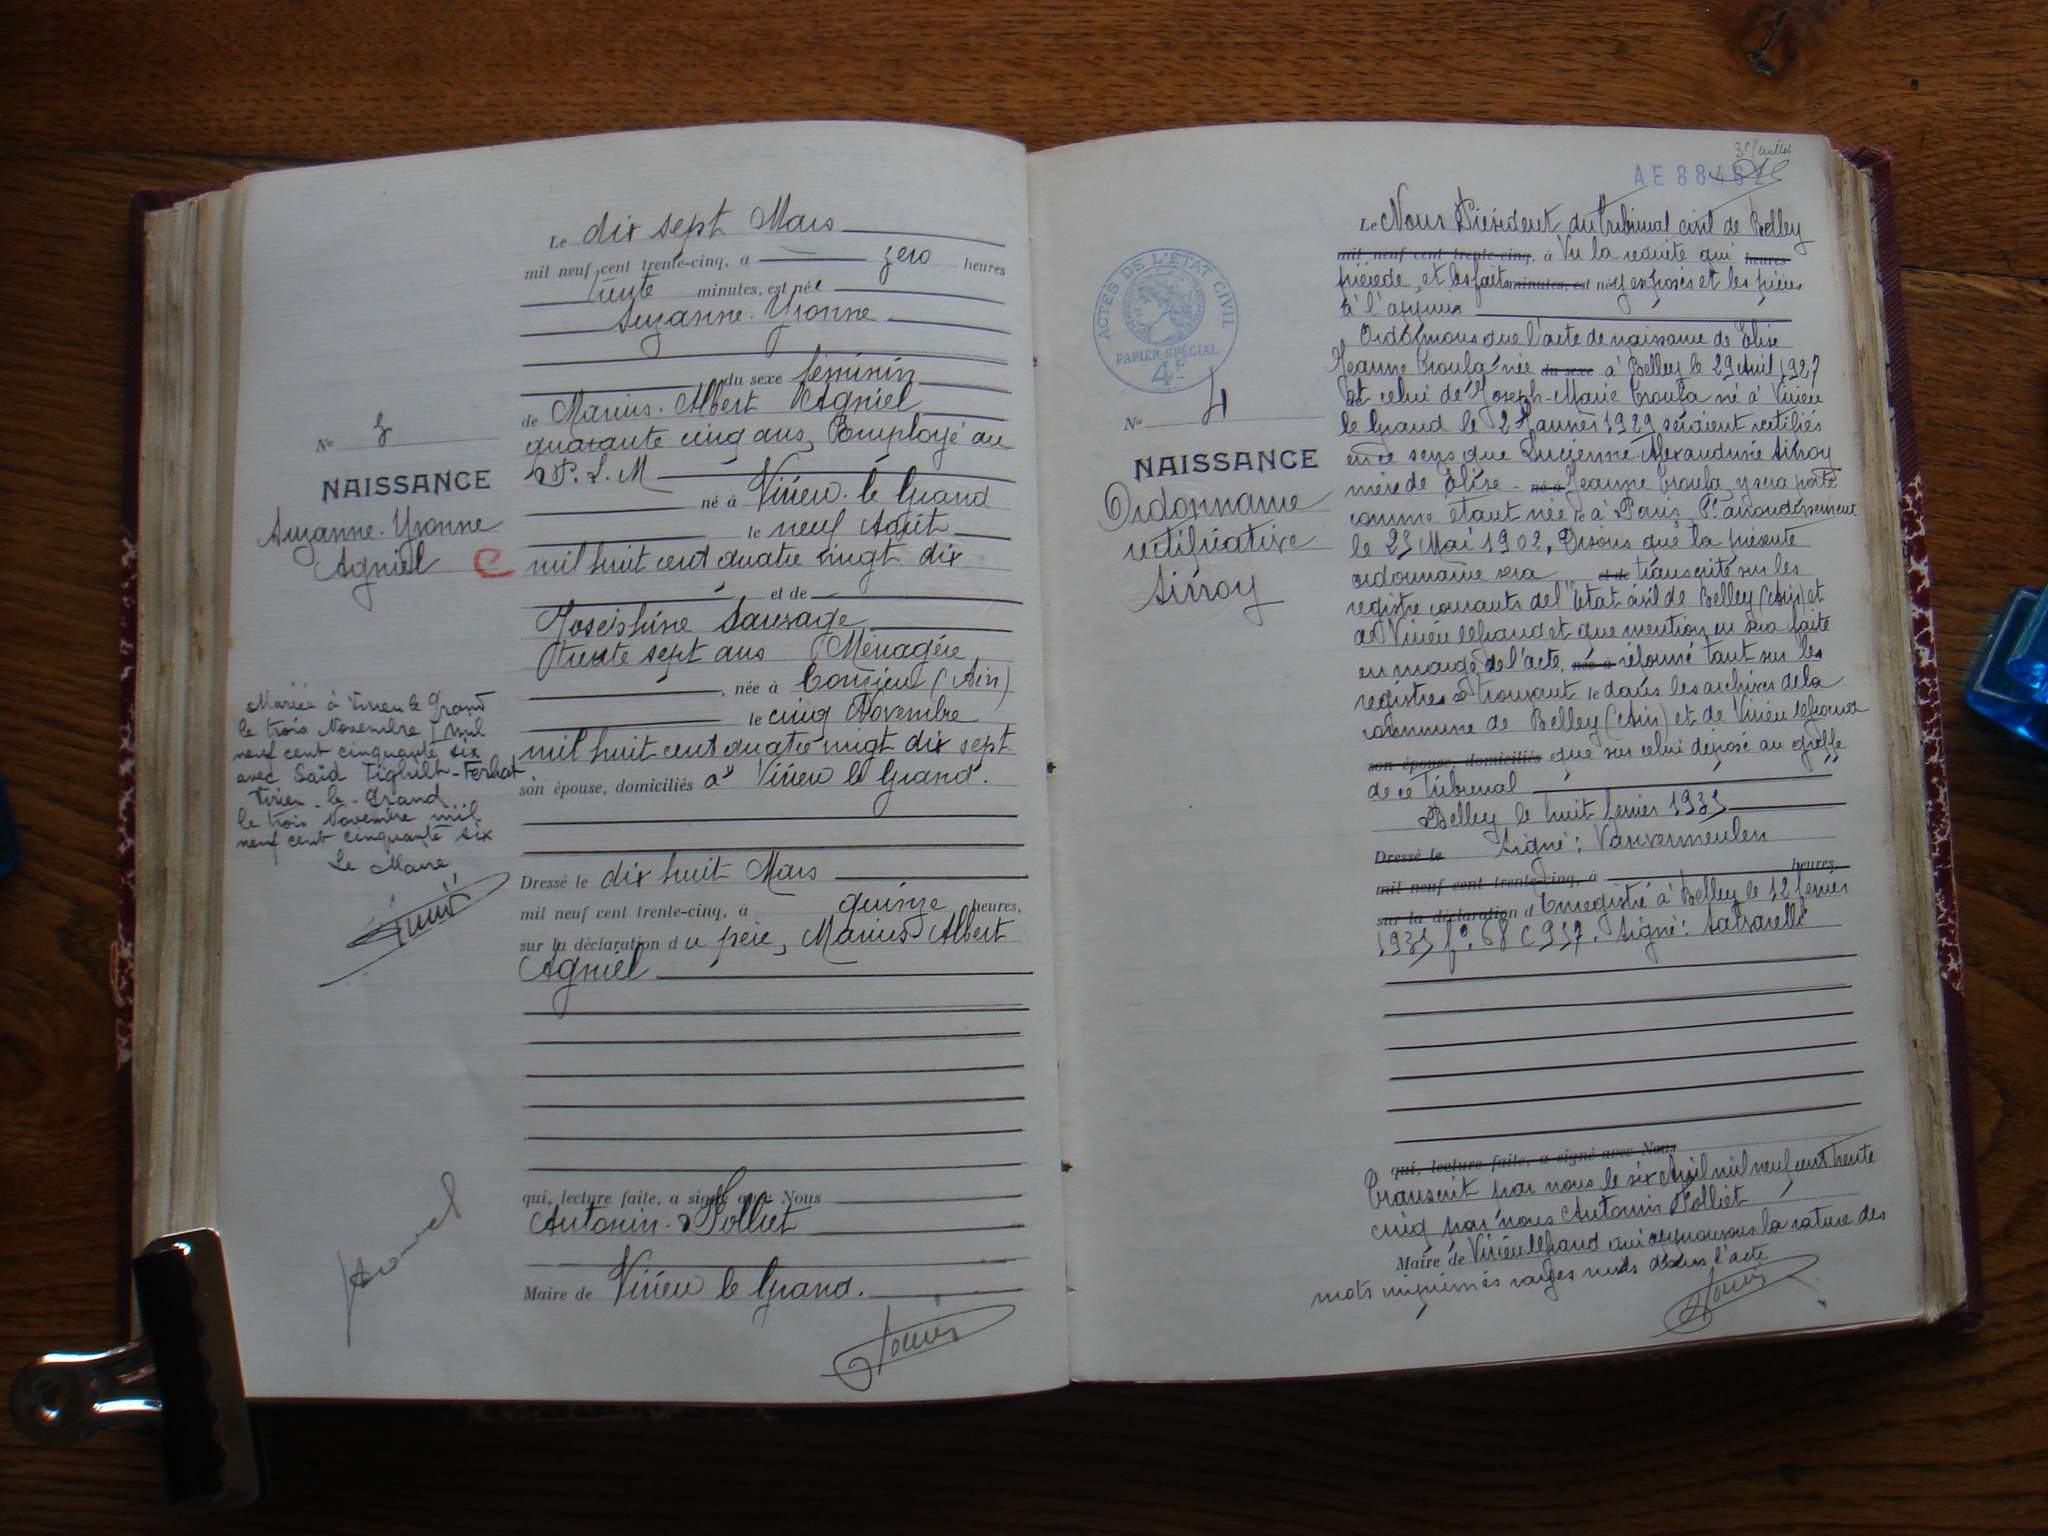 Le dix sept Mars
mil neuf cent trente-cinq, à zero heures
trente minutes, est née
Suzanne. Yvonne
du sexe féminin
de Marius. Albert Agniel
quarante cinq ans, Employé au
P. L. M
né à Virieu. le Grand
le neuf Août
mil huit cent quatre vingt dix
et de
Joséphine Sauvage
trente sept ans Ménagère
, née à Conzieu (Ain)
le cinq Novembre
mil huit cent quatre vingt dix sept
son épouse, domiciliés à Virieu le Grand.
Dressé le dix huit Mars
mil neuf cent trente-cinq, à quinze heures,
sur la déclaration du père, Marius Albert
Agniel
qui, lecture faite, a signé avec Nous
Antonin Polliet
Maire de Virieu le Grand.
No 3
NAISSANCE
Suzanne. Yvonne
Agniel C
Mariée à Virieu le Grand
le trois Novembre mil
neuf cent cinquante six
avec Said Tighilt-Ferhat
Virieu-le-Grand
le trois Novembre mil
neuf cent cinquante six
Le Maire
AE 88462
ACTES DE L'ÉTAT CIVIL
PAPIER SPÉCIAL
4F
No 4
NAISSANCE
Ordonnance
rectificative
Sirroy
Le Nous Président du Tribunal civil de Belley
mil neuf cent trente-cinq, à Vu la requête qui heures
précède, et les faits minutes, est né y exposés et les pièces
à l'appui
Ordonnons que l'acte de naissance de Elise
Jeanne née du sexe à Belley le 29 Avril 1927
et celui de Joseph-Marie né à Virieu
le Grand le 2 Janvier 1929 seraient rectifiés
en ce sens que Lucienne Alexandrine Sirroy
mère de Elise - né à Jeanne y sera porté
comme étant née le à Paris arrondissement
le 25 Mai 1902. Disons que la présente
ordonnance sera et de transcrite sur les
registre courants de l'Etat civil de Belley (Ain) et
de Virieu le Grand et que mention en sera faite
en marge de l'acte, née à réformé tant sur les
registres se trouvant le dans les archives de la
commune de Belley (Ain) et de Virieu le Grand
son épouse, domiciliés que sur celui déposé au greffe
de ce Tribunal
Belley le huit fevrier 1935
Dressé le Signé: Vanvermeulen
mil neuf cent trente-cinq, à heures,
sur la déclaration d Enregistré à Belley le 12 fevrier
1935 fo. 68 C 937. Signé:
qui, lecture faite, a signé avec Nous
Transcrit par nous le six Avril mil neuf cent trente
cinq par nous Antonin Polliet
Maire de Virieu le Grand qui approuvons la rature des
mots imprimés rayés nuls dans l'acte